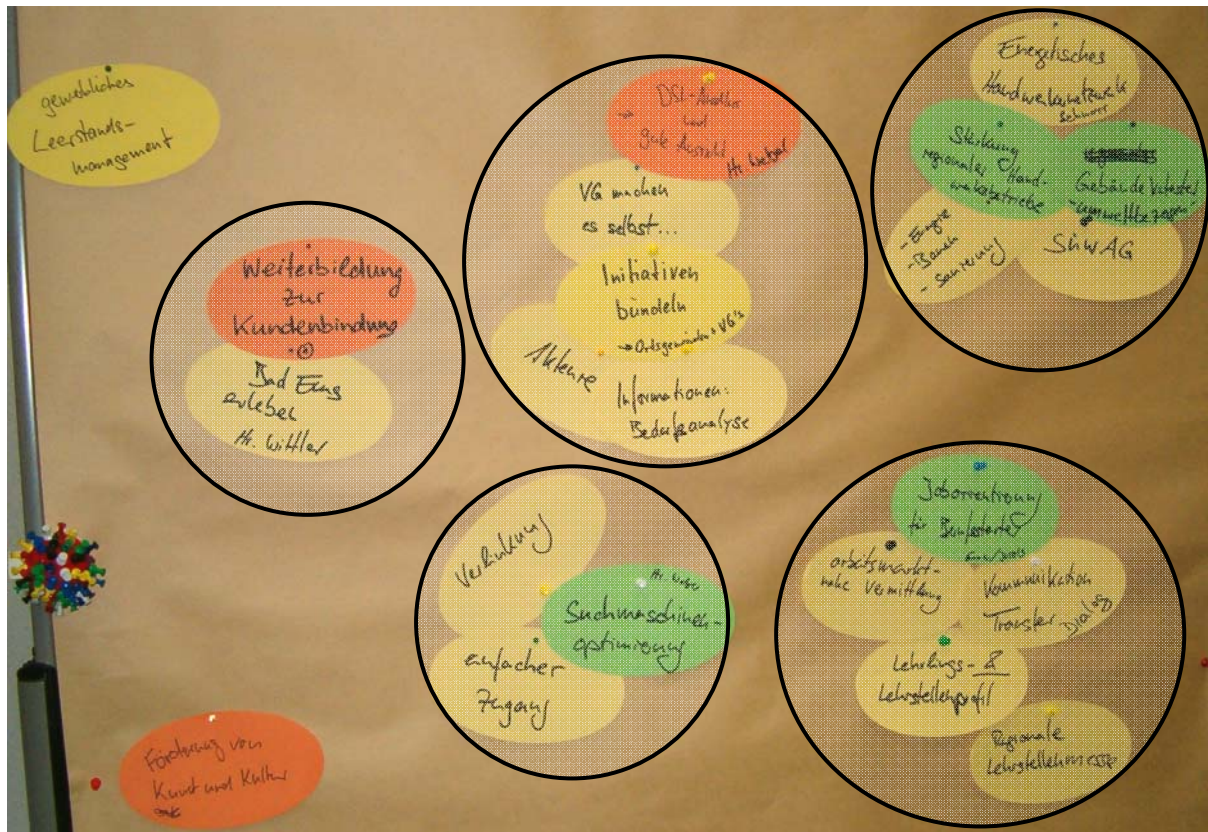 gewerbliches
Leerstands-
management
Weiterbildung
zur
Kundenbindung
Bad Ems
erleben
Hr. Wittler
→ DSL-Ausbau
und
gute Auswahl
Hr. Wetzel
VG machen
es selbst...
Initiativen
bündeln
→ Ortsgemeinden + VG's
Akteure
Informationen:
Bedarfsanalyse
Energetisches
Handwerkernetzwerk
Stärkung
regionaler Hand-
werksbetriebe
Gebäudekataster
- Energie
- Bauen
- Sanierung
SÜWAG
Verlinkung
Hr. Weber
Suchmaschinen-
optimierung
einfacher
Zugang
Joborientierung
für Berufsstarter
arbeitsmarkt-
nahe Vermittlung
Kommunikation
Transfer
Dialog
Lehrlings- &
Lehrstellenprofil
Regionale
Lehrstellenmesse
Förderung von
Kunst und Kultur